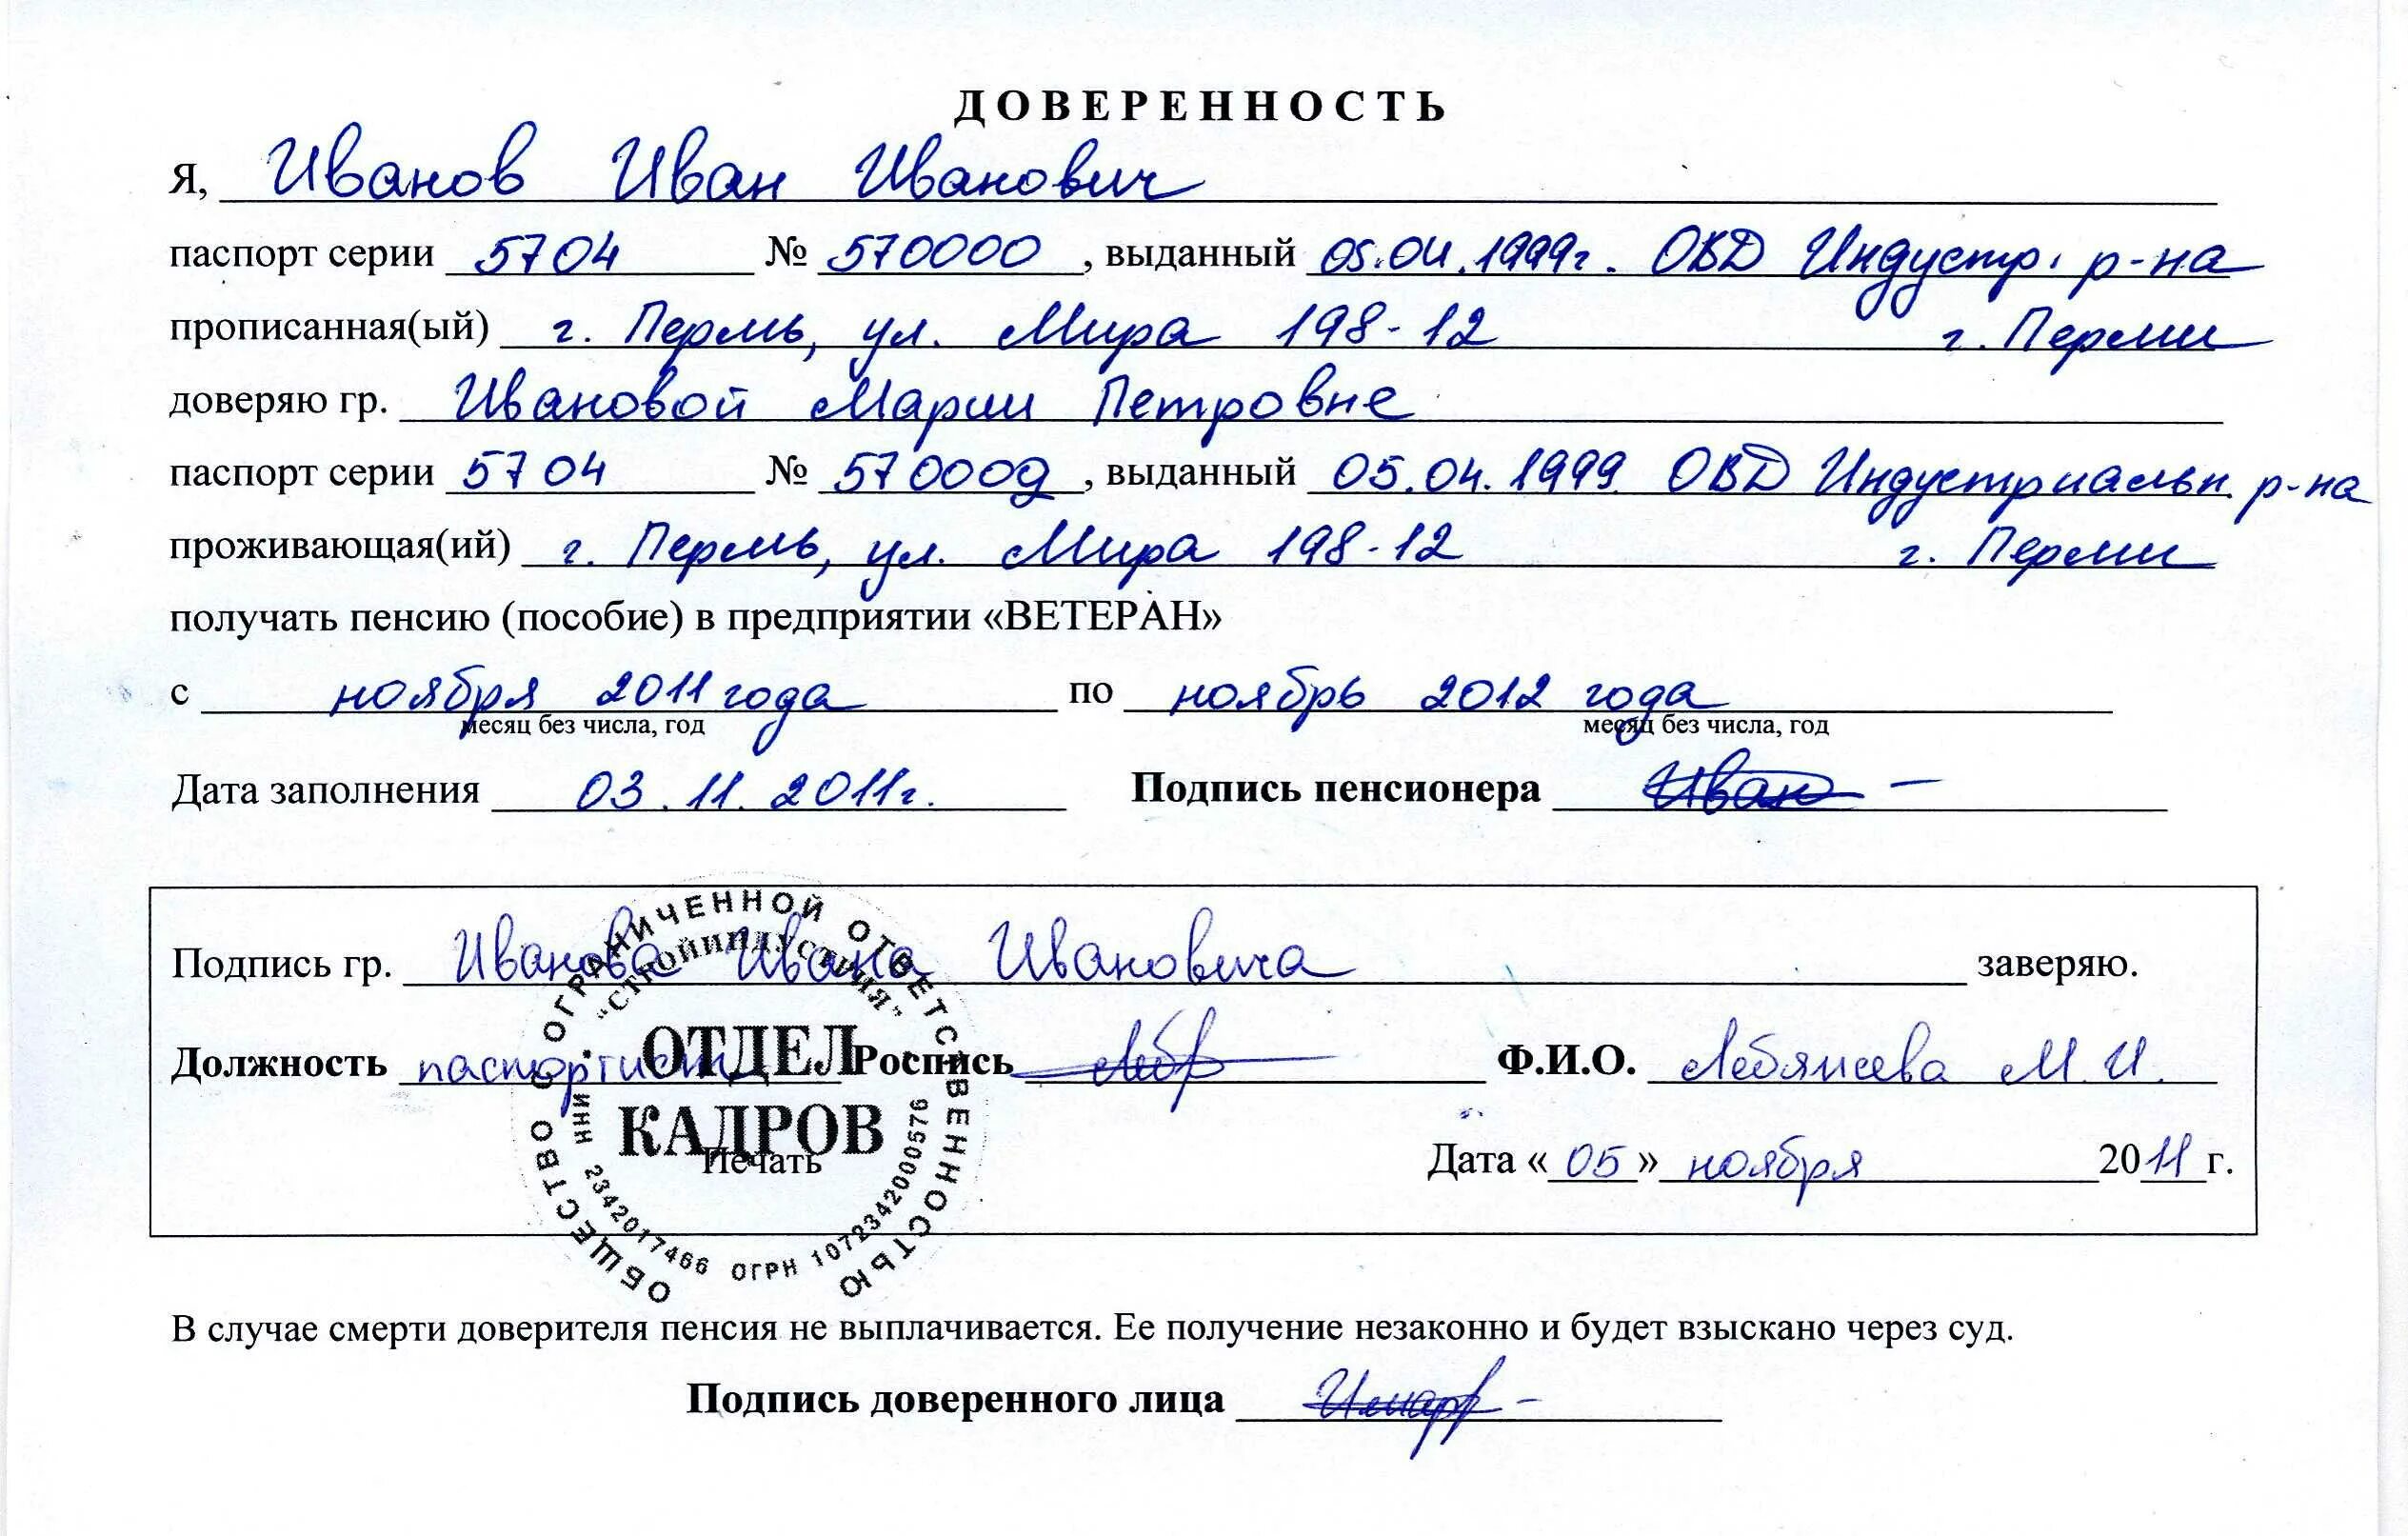 ДОВЕРЕННОСТЬ
Я, Иванов Иван Иванович
паспорт серии 5704 № 570000, выданный 05.04.1999г. ОВД Индустр. р-на
прописанная(ый) г. Пермь, ул. Мира 198-12 г. Перми
доверяю гр. Ивановой Марии Петровне
паспорт серии 5704 № 570009, выданный 05.04.1999 ОВД Индустриальн. р-на
проживающая(ий) г. Пермь, ул. Мира 198-12 г. Перми
получать пенсию (пособие) в предприятии «ВЕТЕРАН»
с ноября 2011 года по ноябрь 2012 года
месяц без числа, год месяц без числа, год
Дата заполнения 03.11.2011г. Подпись пенсионера Иван
Подпись гр. Иванова Ивана Ивановича заверяю.
Должность паспортист Роспись Ф.И.О. М.И.
Печать Дата «05» ноября 2011 г.
ОБЩЕСТВО С ОГРАНИЧЕННОЙ ОТВЕТСТВЕННОСТЬЮ
"СТРОЙИНДУСТРИЯ"
ОТДЕЛ
КАДРОВ
ИНН 2342017466 ОГРН 1072342000576
В случае смерти доверителя пенсия не выплачивается. Ее получение незаконно и будет взыскано через суд.
Подпись доверенного лица